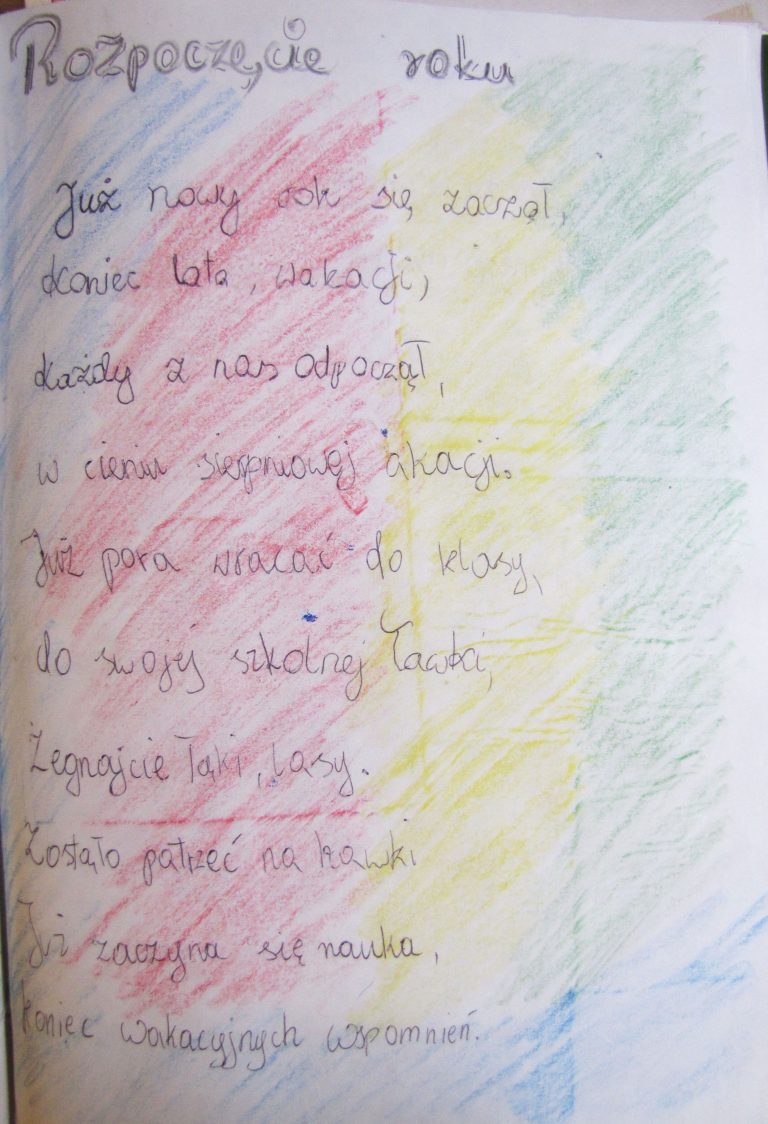 Rozpoczęcie roku
Już nowy rok się zaczął,
Koniec lata, wakacji,
Każdy z nas odpoczął,
w cieniu sierpniowej akacji.
Już pora wracać do klasy,
do swojej szkolnej ławki,
Żegnajcie łąki, lasy.
Zostało patrzeć na kawki
Już zaczyna się nauka,
koniec wakacyjnych wspomnień.